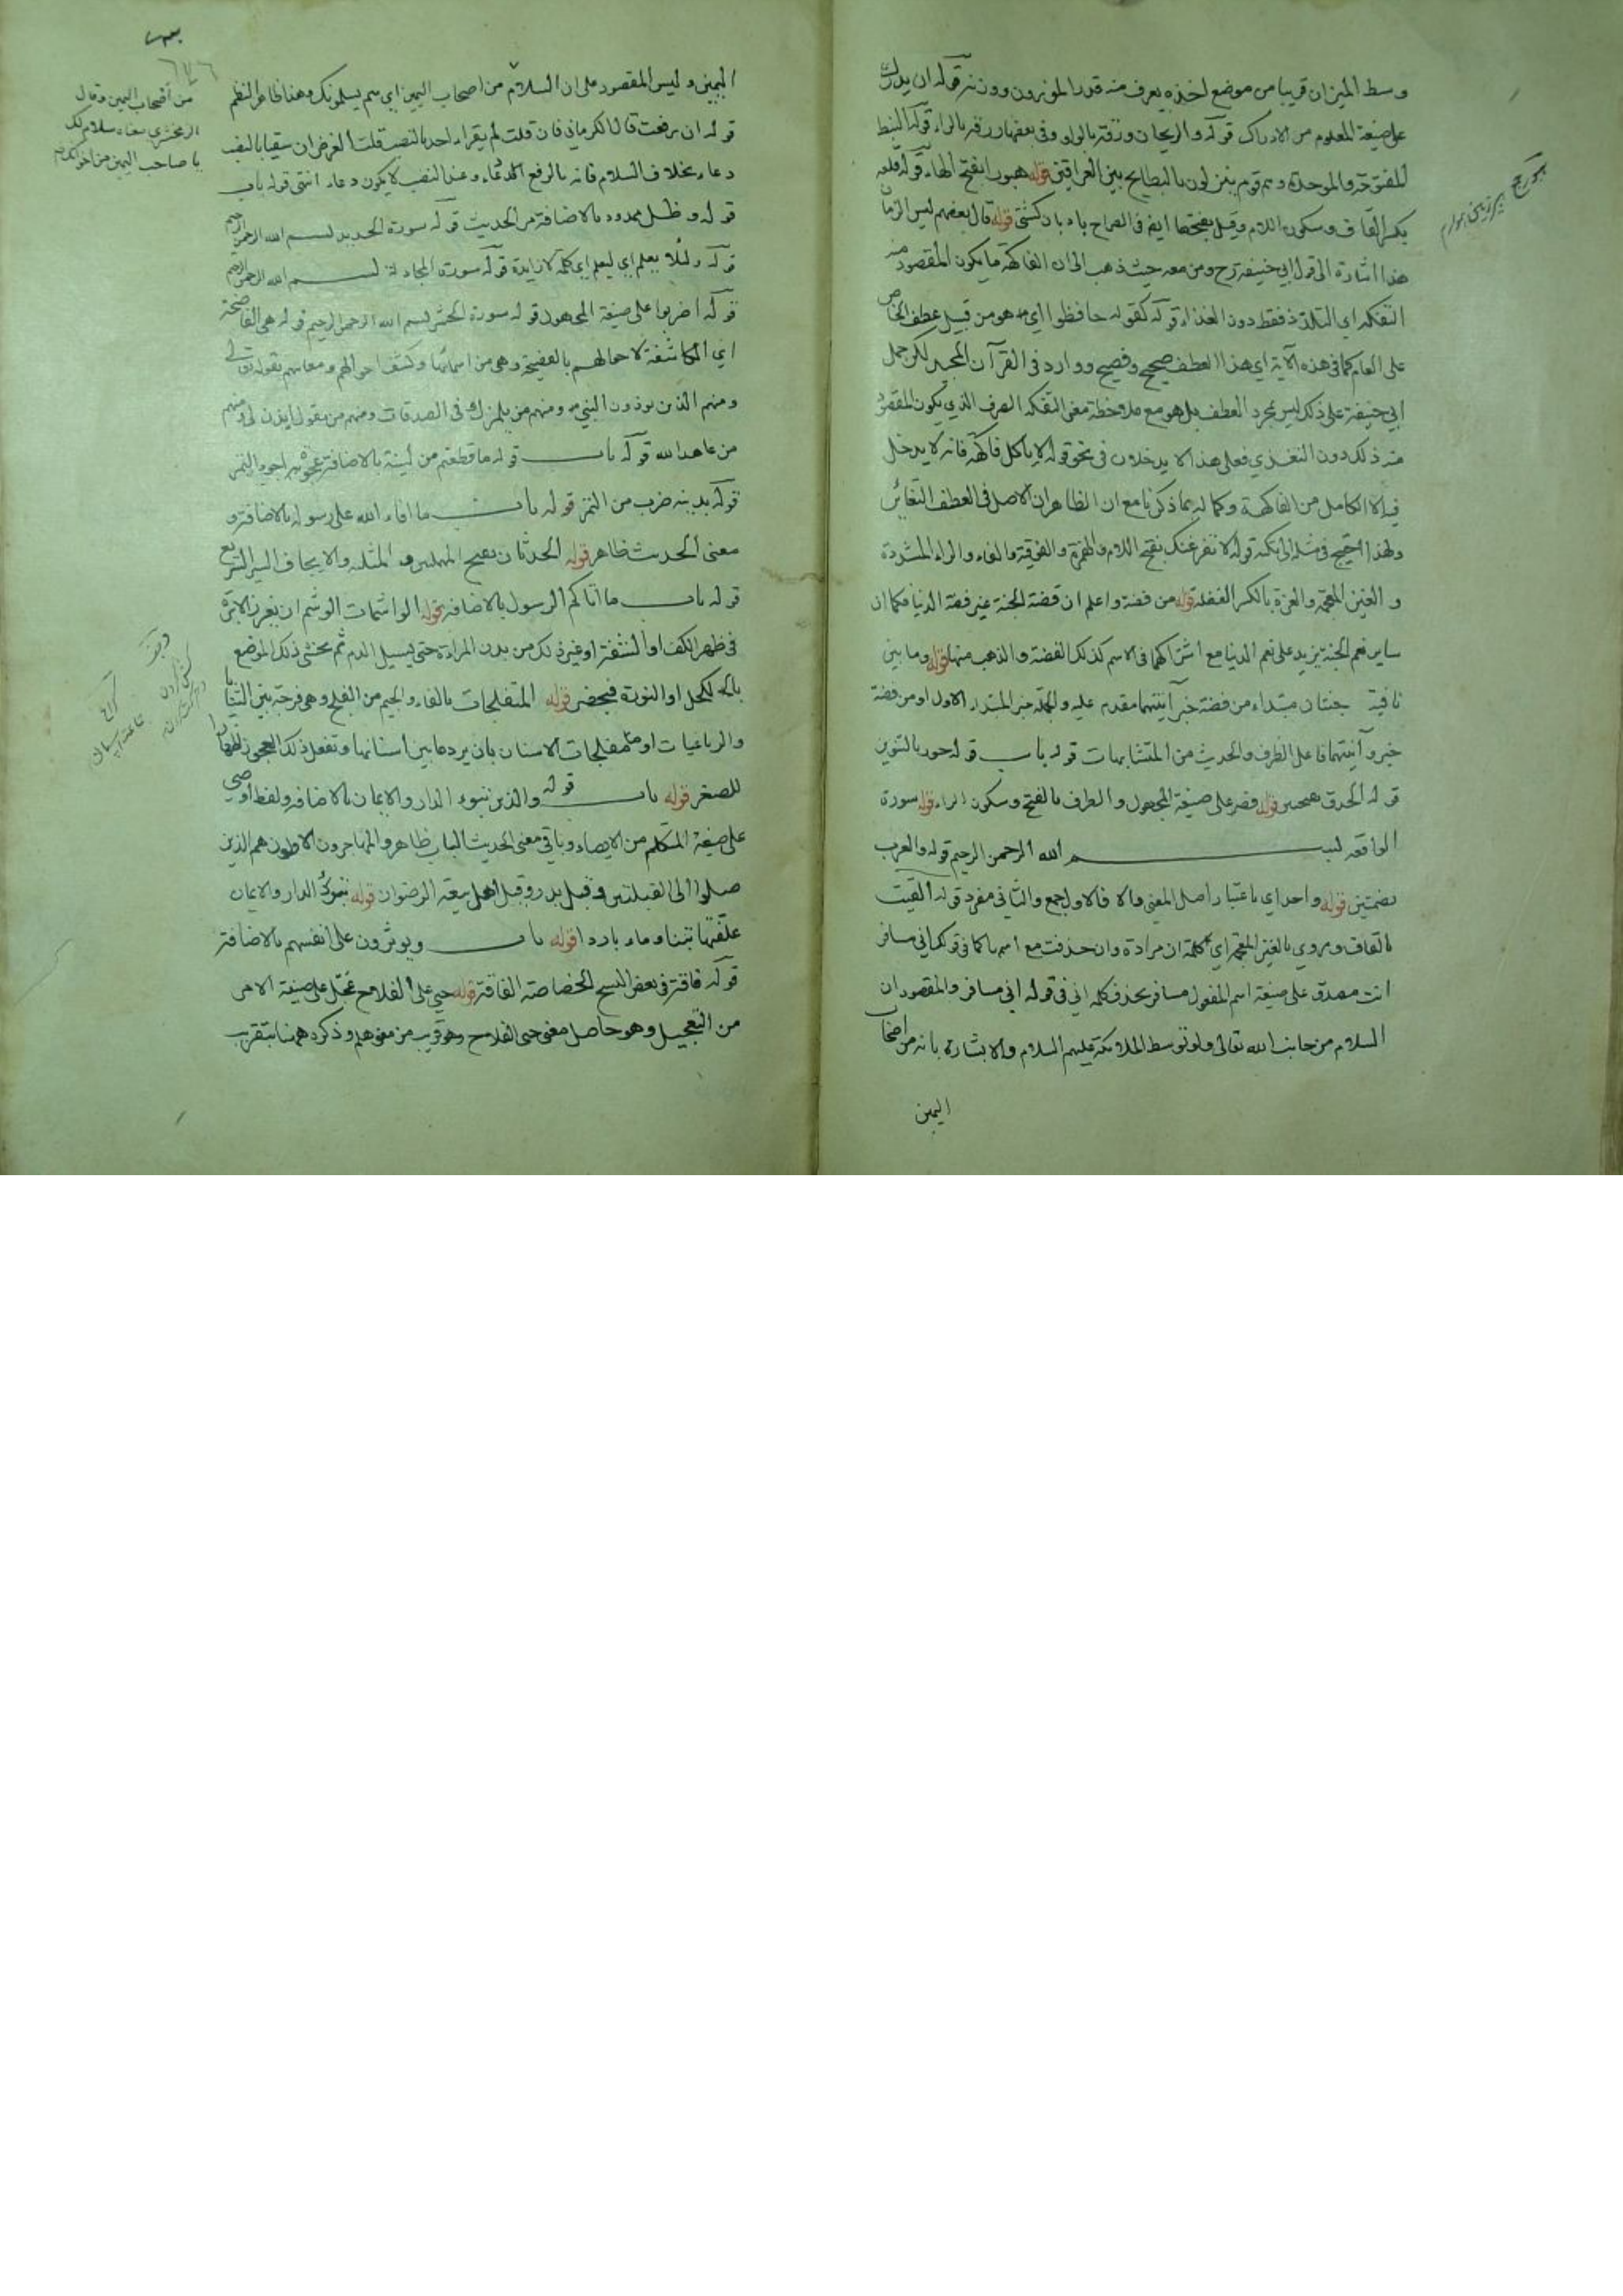 وسط الميزان قريبا من موضع لخذه يعرف منه قدر الموزون ووزنه قوله ان يدرك
على صيغة المعلوم من الادراك قوله والريحان ورزقه بالواو وفي بعضها رزقه بالراء قوله النبط
المفتوحة والموحدة وهم قوم ينزلون بالبطايح بين العراقين قوله هبوب بفتح الهاء قوله قلعه
بكسر القاف وسكون اللام وقيل بفتحها ايضا في الصراح بادبان كشتى قوله قال بعضهم ليس الرمان
هذا اشارة الى قول ابي حنيفة رح ومن معه حيث ذهب الى ان الفاكهة ما يكون المقصود منه
التفكه اي التلذذ فقط دون الغذاء قوله كقوله حافظوا اي هو من قبيل عطف الخاص
على العام كما في هذه الآية اي هذا العطف صحيح وفصيح ووارد في القرآن المجيد لكن حمل
ابي حنيفة على ذلك ليس بمجرد العطف بل هو مع ملاحظة معنى التفكه الصرف الذي يكون المقصود
منه ذلك دون التغذي فعلى هذا لا يدخلان في نحو قوله لا ياكل فاكهة فانه لا يدخل
فيه الا الكامل من الفاكهة وكماله بما ذكرنا مع ان الظاهر ان الاصل في العطف التغائر
ولهذا احتيج في مثله الى نكتة قوله لا نفرغنك بفتح اللام والهمزة والفوقية والفاء والراء المشددة
والغين المعجمة والغرة بالكسر الغفلة قوله من فضة واعلم ان فضة الجنة غير فضة الدنيا فكما ان
ساير نعم الجنة يزيد على نعم الدنيا مع اشتراكهما في الاسم كذلك الفضة والذهب منها قوله وما بين
نافية جنتان مبتداء من فضة خبر آنيتهما مقدم عليه والجملة خبر المبتداء الاول او من فضة
خبر وآنيتهما فاعل الظرف والحديث من المتشابهات قوله باب قوله حور بالتنوين
قوله الحدق قوله قصر على صيغة المجهول والطرف بالفتح وسكون الراء قوله سورة
الواقعه بسم الله الرحمن الرحيم قوله والعرب
بضمتين قوله واحد اي باعتبار اصل المعنى والا فالاول جمع والثاني مفرد قوله القيت
بالقاف ويروي بالغين المعجمة اي كلمة ان مرادة وان حذفت مع اسمها كما في قولك اني مسافر
انت مصدق على صيغة اسم المفعول مسافر بحذف كلمه اني في قوله اني مسافر والمقصود ان
السلام من جانب الله تعالى ولو بتوسط الملائكة عليهم السلام والابشارة بانه من اصحاب
اليمين
اليمين وليس المقصود على ان السلام من اصحاب اليمين اي هم يسلمونك وهذا ظاهر النظم
قوله ان رفعت قال الكرماني فان قلت لم يقراء احد بالنصب قلت الغرض ان سقيا بالنصب
دعاء بخلاف السلام فانه بالرفع دعاء وعند النصب لا يكون دعاء انتهى قوله باب
قوله وظل ممدود بالاضافة من الحديث قوله سورة الحديد بسم الله الرحمن الرحيم
قوله لئلا يعلم اي ليعلم اي كلمة لا زايدة قوله سورة المجادلة بسم الله الرحمن الرحيم
قوله اخزيوا على صيغة المجهول قوله سورة الحشر بسم الله الرحمن الرحيم قوله هي الفاضحة
اي الكاشفة لاحوالهم بالفضيحة وهي من اسمائها وكشف احوالهم ومعاييهم بقوله تعالى
ومنهم الذين يوذون النبي ومنهم من يلمزك في الصدقات ومنهم من يقول ايذن لي ومنهم
من عاهد الله قوله باب قوله ما قطعتم من لينة بالاضافة عجوة اجود التمر
قوله برنيه ضرب من التمر قوله باب ما افاء الله على رسوله بالاضافة و
معنى الحديث ظاهر قوله الحدثان بفتح المهملتين والمثلثه والايجاف السير السريع
قوله باب ما اتاكم الرسول بالاضافه قوله الواشمات الوشم ان يغرز الابرة
في ظهر الكف او الشفة او غير ذلك من بدن المراءة حتى يسيل الدم ثم يحشى ذلك الموضع
بالكحل او النورة فيخضر قوله المتفلجات بالفاء والجيم من الفلج وهي فرجة بين الثنايا
والرباعيات او متفلجات الاسنان بان يبرد ما بين اسنانها وتفعل ذلك العجوز اظهارا
للصغر قوله باب قوله والذين تبوؤ الدار والايمان بالاضافه ولفظ اوصي
على صيغة المتكلم من الايصاء وباقي معنى الحديث الباب ظاهر والمهاجرون الاولون هم الذين
صلوا الى القبلتين وقيل بدر وقيل اهل بيعة الرضوان قوله تبوؤ الدار والايمان
علفتها تبنا وماء باردا قوله باب ويوثرون على انفسهم بالاضافة
قوله فاقة وفي بعض النسخ الخصاصة الفاقة قوله حي على الفلاح عجل على صيغة الامر
من التعجيل وهو حاصل معنى حي الفلاح وهو قريب من معنى هلم وذكره ههنا بتقريب
٦٧٦
من أصحاب اليمين وقال
الزمخشري معناه سلام لك
يا صاحب اليمين من اخوانك